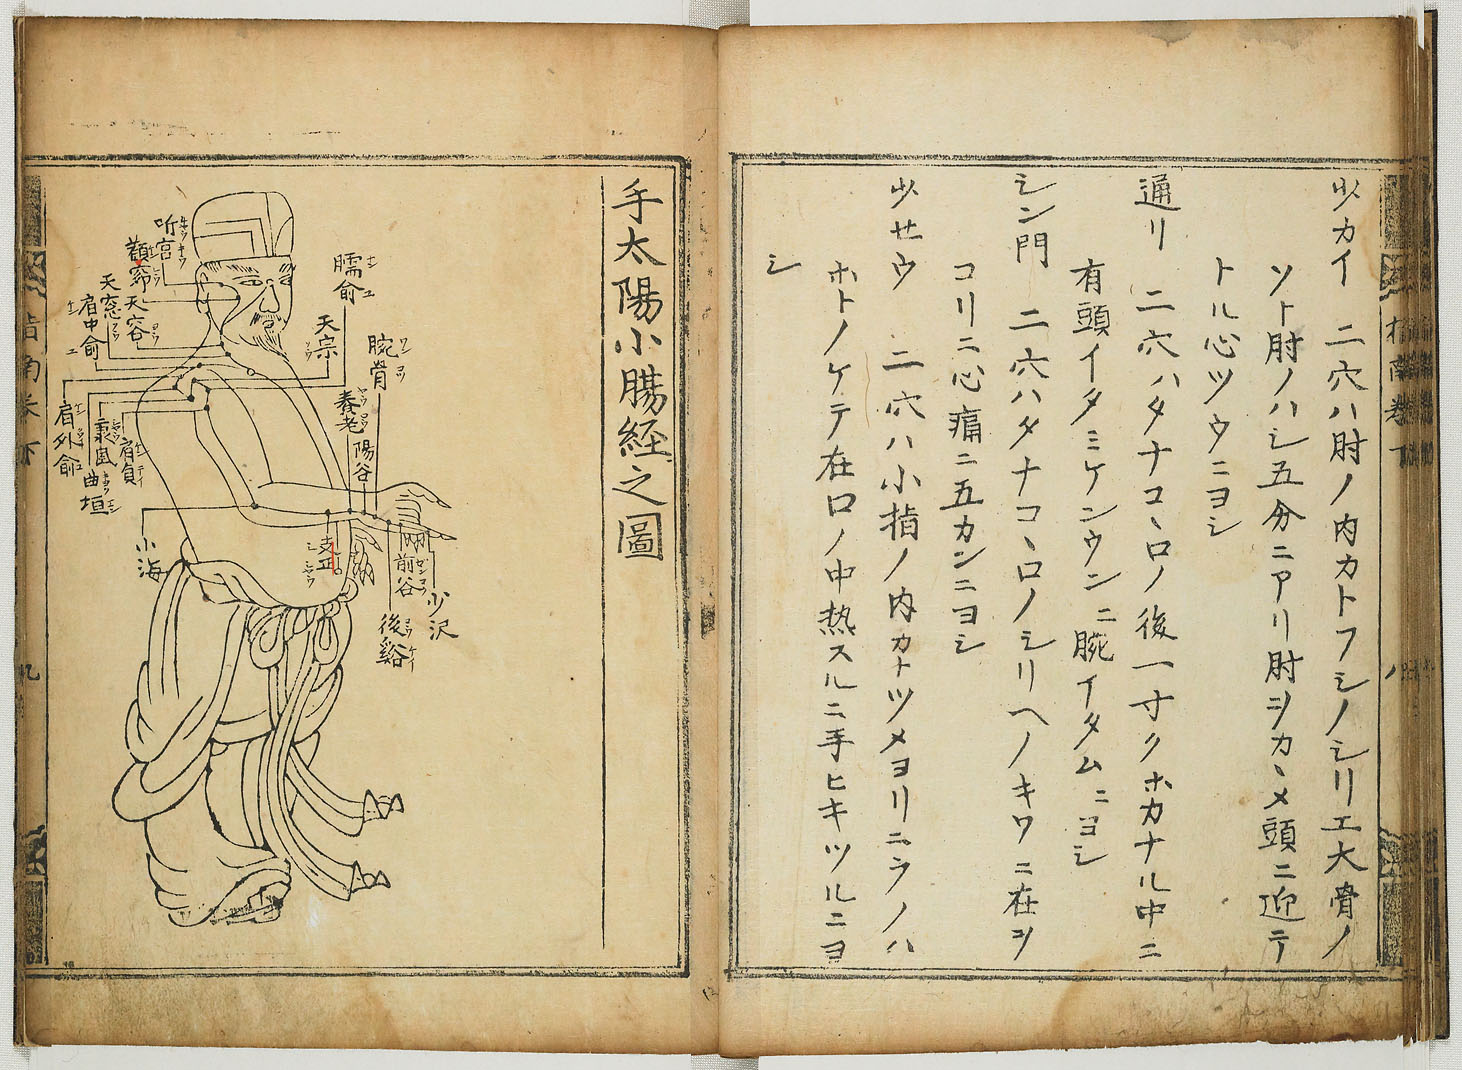 少カイ 二穴ハ肘ノ内カトフシノシリエ大骨ノ
ソト肘ノハシ五分ニアリ肘ヲカヽメ頭ニ迎テ
トル心ツウニヨシ
通リ 二穴ハタナコヽロノ後一寸クホカナル中ニ
有頭イタミケンウンニ腕イタムニヨシ
シン門 二穴ハタナコヽロノシリヘノキワニ在ヲ
コリニ心痛ニ五カンニヨシ
少セウ 二穴ハ小指ノ内カトツメヨリニラノハ
ホトノケテ在口ノ中熱スルニ手ヒキツルニヨ
シ
手太陽小腸経之圖
臑俞
天宗
腕骨
養老
陽谷
听宮
顴窌
天容
天窓
肩中俞
肩外俞
秉風
曲垣
肩貞
小海
支正
前谷
後谿
少沢
指南巻下